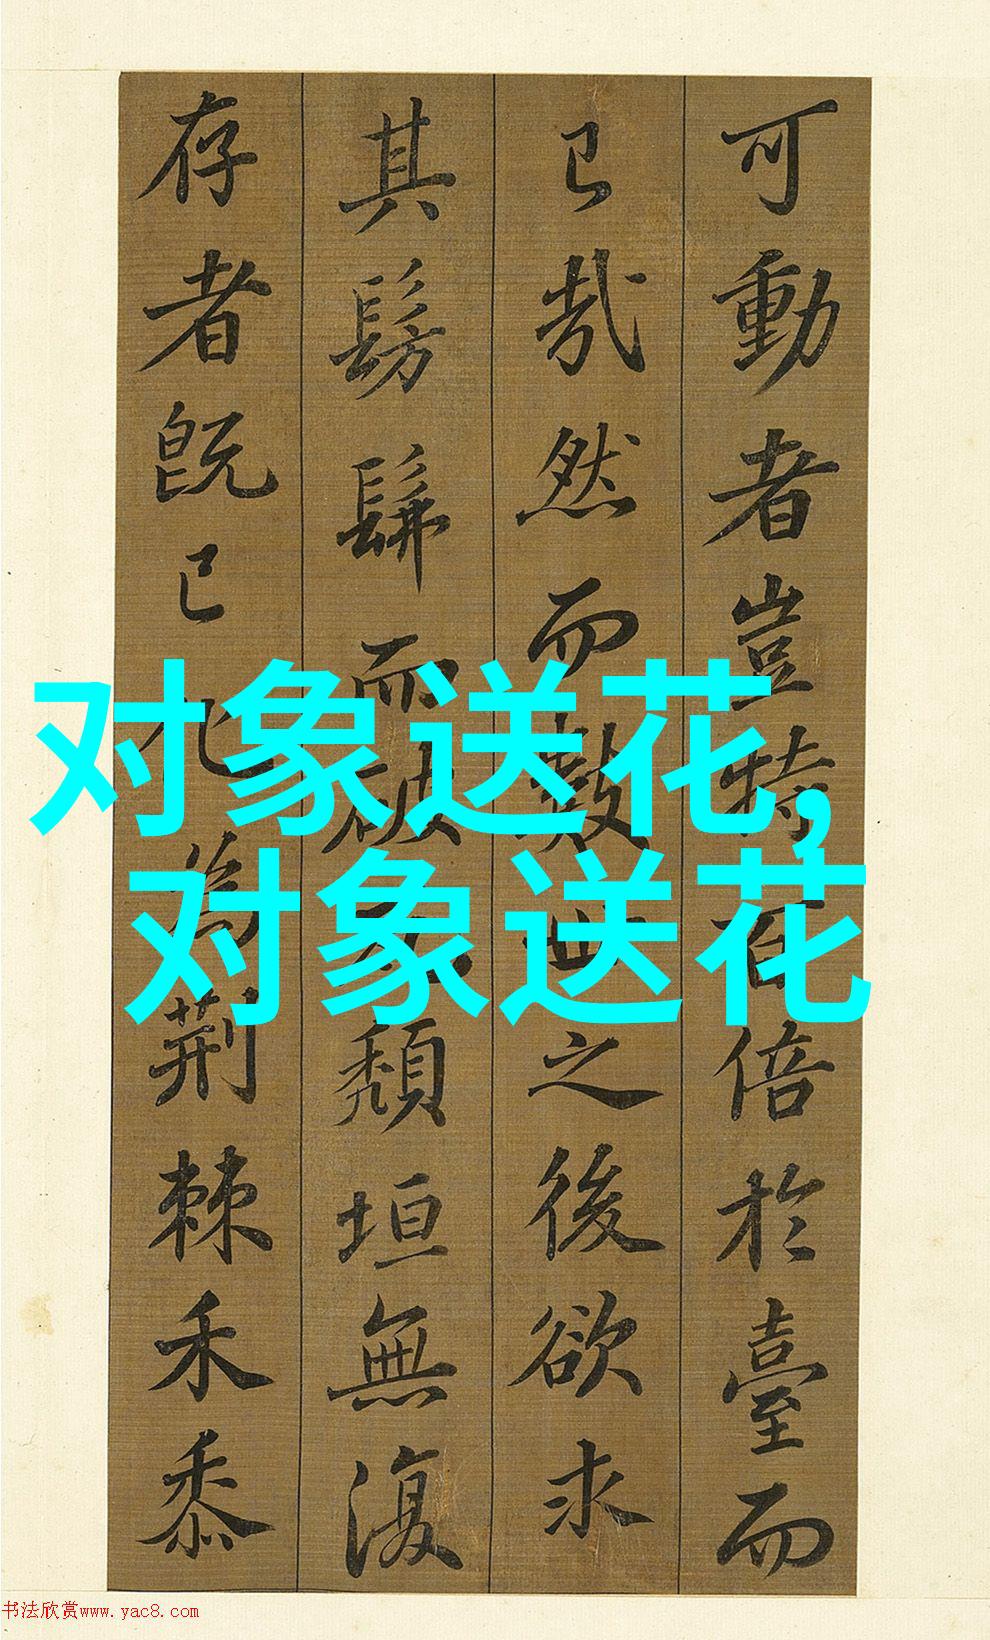 可動者豈特百倍於臺而
已哉然而數世之後欲求
其髣髴而破瓦頹垣無復
存者既已化為荊棘禾黍
对象送花,
对象送花
书法欣赏www.yac8.com